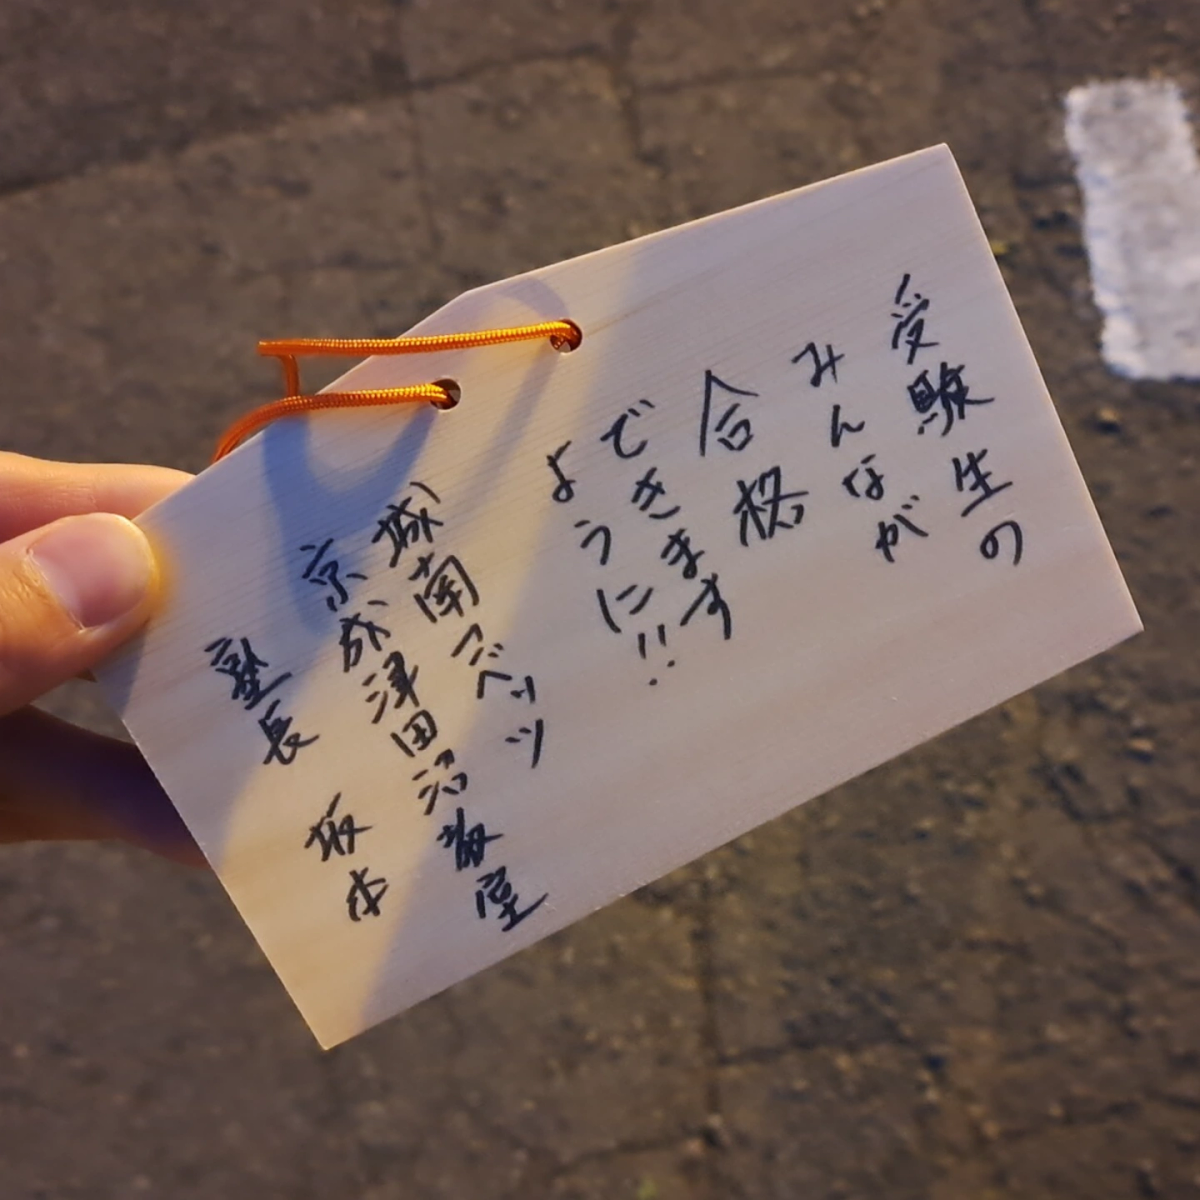 受験生の
みんなが
合格
できます
ように!!
城南コベッツ
京成津田沼教室
塾長 坂本